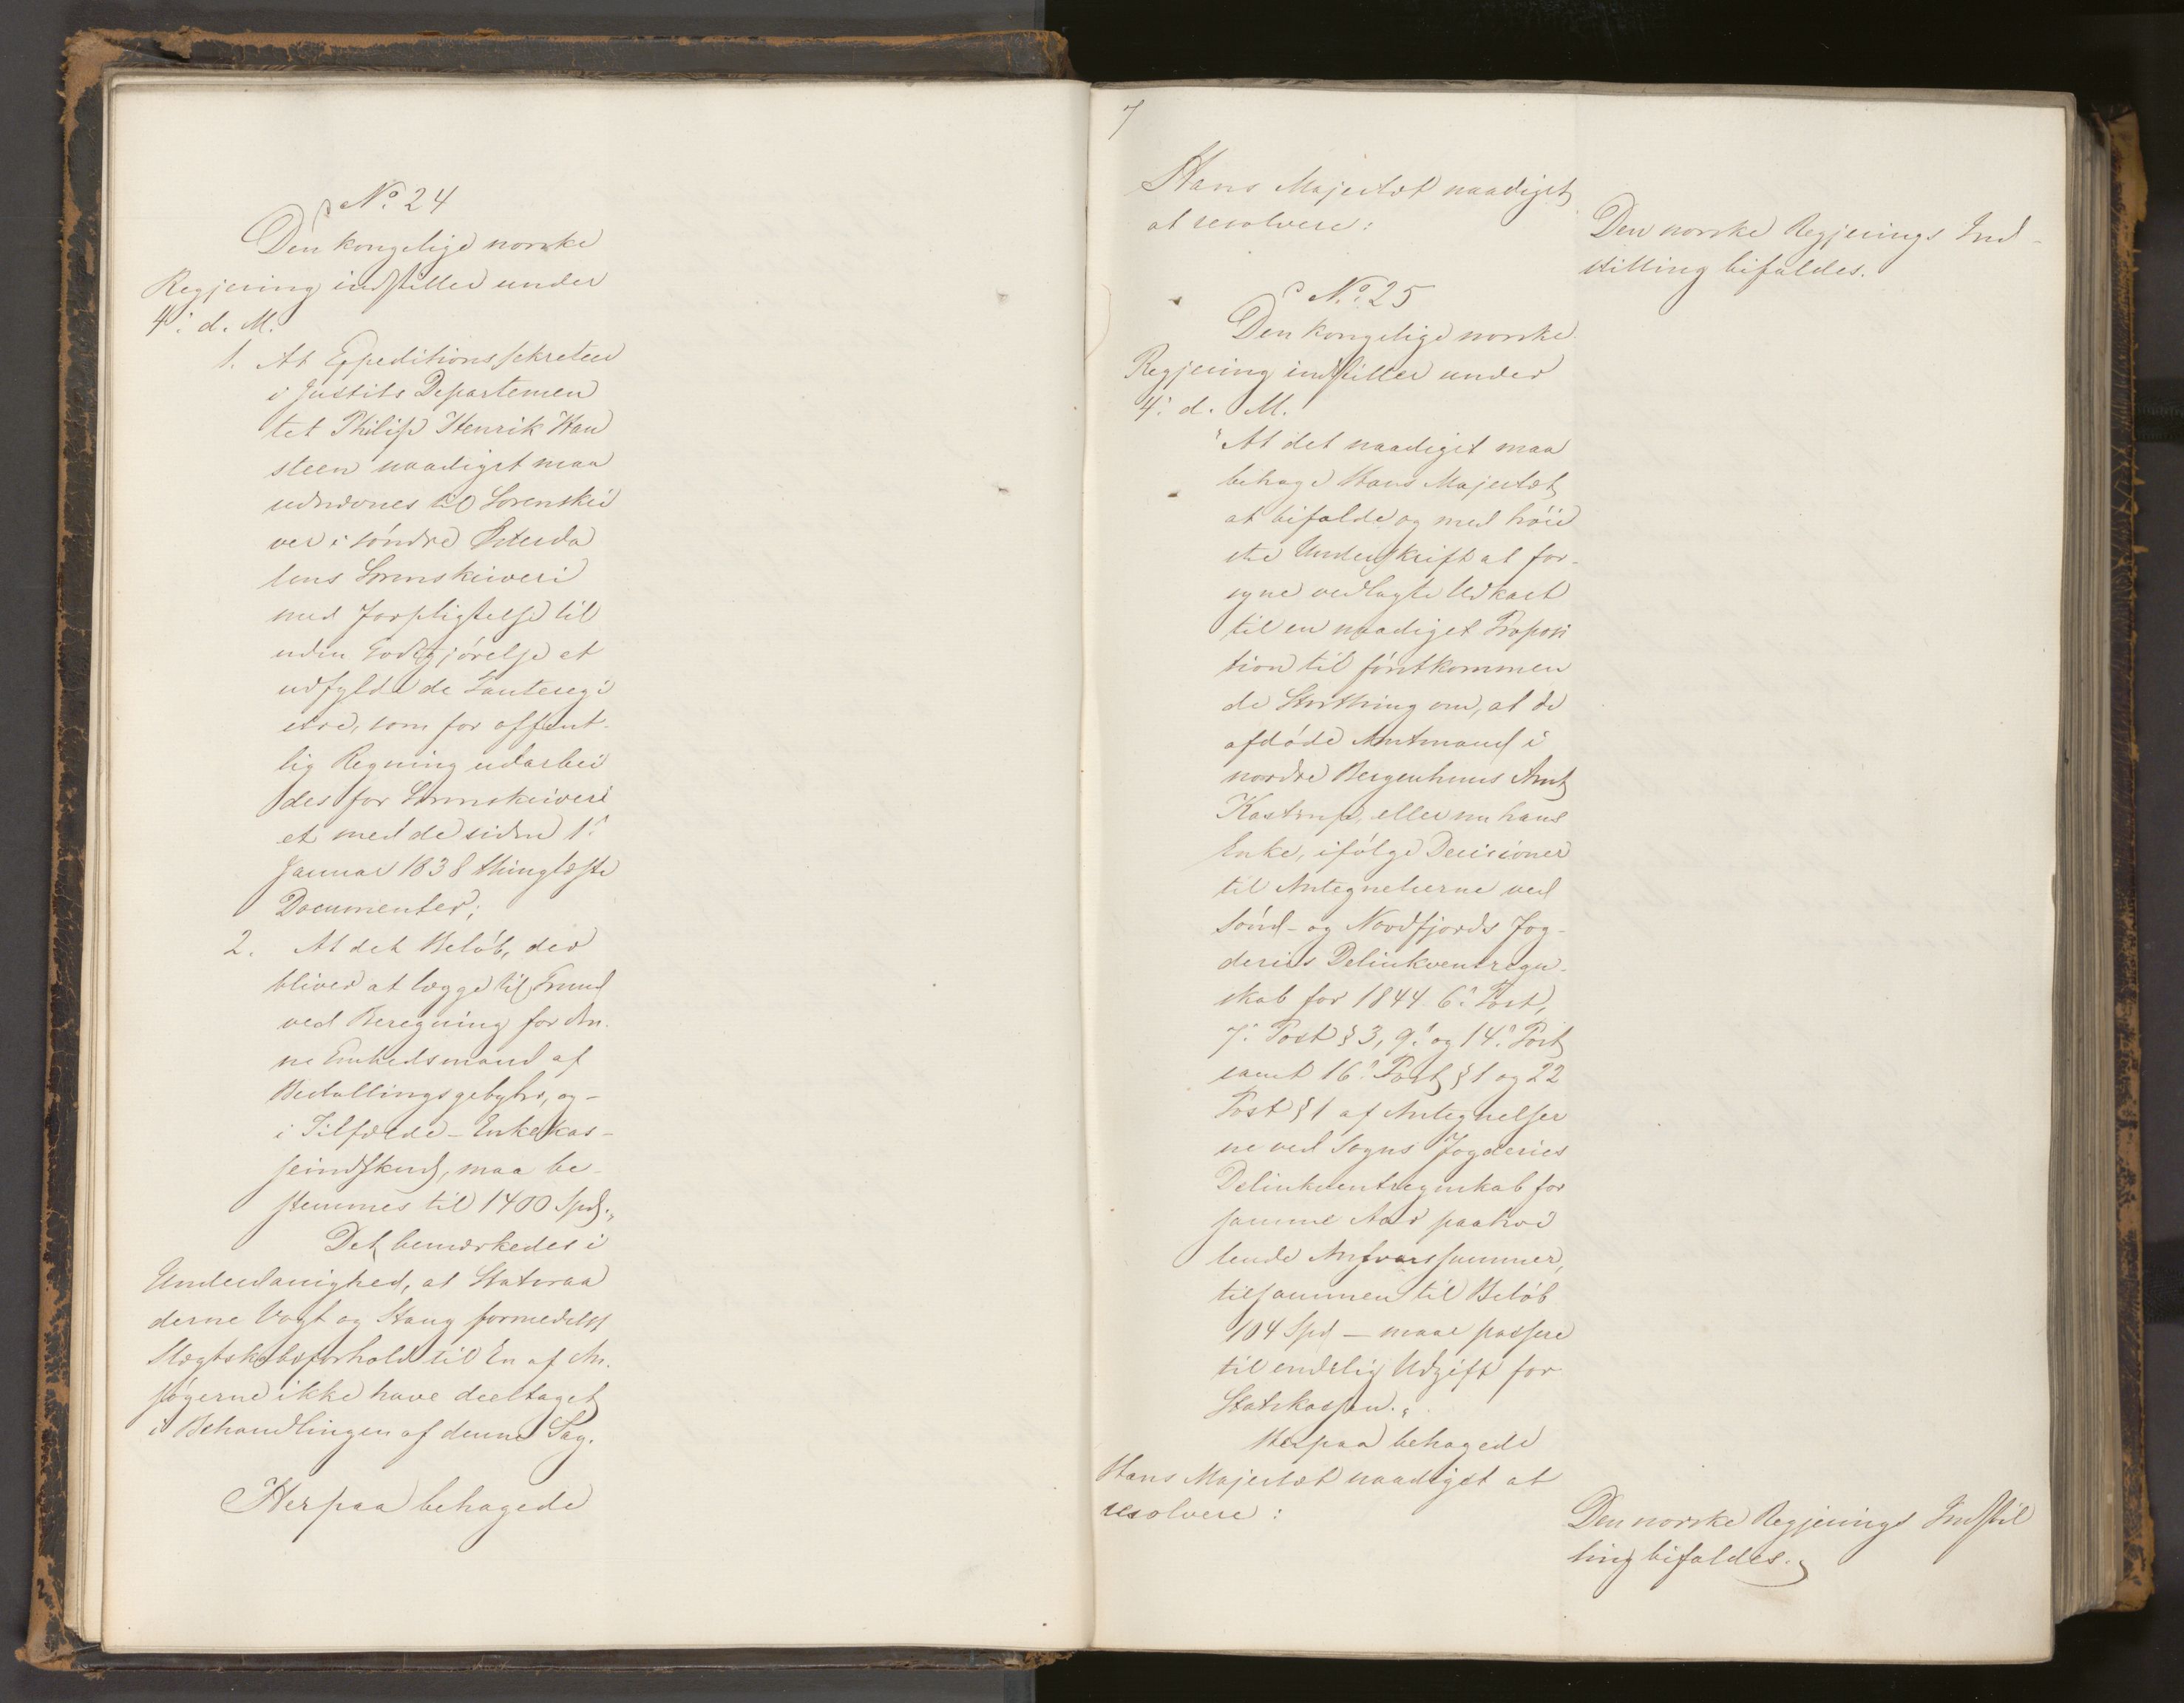 No. 24
Den kongelige norske
Regjering indstiller under
4. d. M.
1. At Expeditionssekretær
i Justits Departemen
tet Philip Henrik Han
steen naadigst maa
udnævnes til Sorenskri
ver i søndre Østerda
lens Sorenskriveri
med Forpligtelse til
uden Godtgjørelse at
udfylde de Panteregi
stre, som for offent-
lig Regning udarbei
des for Sorenskriveri
et med de siden 1.
Januar 1838 thinglæste
Documenter;
2. At det Beløb, der
bliver at lægge til Grund
ved Beregning for den-
ne Embedsmand af
Bestallingsgebyhr, og -
i Tilfælde - Enkekas-
seindskud, maa be-
stemmes til 1400 Spd."
Det bemærkedes i
Underdanighed, at Statsraa
derne Vogt og Stang formedelst
Slægtskabsforhold til En af An-
søgerne ikke have deeltaget
i Behandlingen af denne Sag.
Herpaa behagede
7
Hans Majestæt naadigst
at resolvere:
Den norske Regjerings Ind-
stilling bifaldes.
No. 25
Den kongelige norske
Regjering indstiller under
4. d. M.
"At det naadigst maa
behage Hans Majestæt
at bifalde og med høie
ste Underskrift at for-
syne vedlagte Udkast
til en naadigst Proposi
tion til førstkommen
de Storthing om, at de
afdøde Amtmand i
nordre Bergenhuus Amt
Kastrup, eller nu hans
Enke, ifølge Decisioner
til Antegnelserne ved
Sønd- og Nordfjords Fog-
deries Delinkventregn-
skab for 1844 6. Post,
7. Post § 3, 9. og 14. Post
samt 16. Post § 1 og 22
Post § 1 af Antegnelser
ne ved Sogns Fogderies
Delinkventregnskab for
samme Aar paahvi
lende Ansvarssummer,
tilsammen til Beløb
104 Spd - maae passere
til endelig Udgift for
Statskassen."
Herpaa behagede
Hans Majestæt naadigst at
resolvere:
Den norske Regjerings Indstil
ling bifaldes.